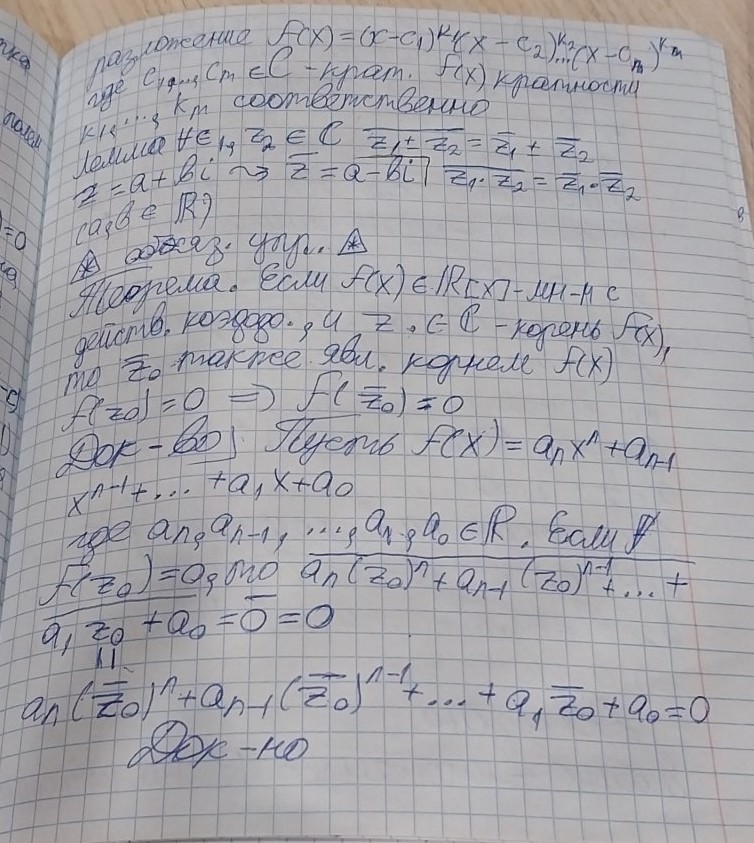 разложение f(x)=(x-c₁)^k₁(x-c₂)^k₂...(x-c_m)^k_m
где c₁,..., c_m ∈ C - крат. f(x) кратности
k₁,..., k_m соответственно
Лемма ∀z₁, z₂ ∈ C  \overline{z₁ ± z₂} = z̄₁ ± z̄₂
z = a + bi ⇝ z̄ = a - bi | \overline{z₁ · z₂} = z̄₁ · z̄₂
(a,b ∈ R)
упр.
Теорема. Если f(x) ∈ R[x] - мн-н с
действ. коэф., и z₀ ∈ C - корень f(x),
то z̄₀ также явл. корнем f(x)
f(z₀) = 0 ⇒ f(z̄₀) = 0
Док-во] Пусть f(x) = aₙxⁿ + aₙ₋₁
xⁿ⁻¹ + ... + a₁x + a₀
где aₙ, aₙ₋₁, ..., a₁, a₀ ∈ R. Если
f(z₀) = 0, то \overline{aₙ(z₀)ⁿ + aₙ₋₁(z₀)ⁿ⁻¹ + ... +
a₁z₀ + a₀} = 0̄ = 0
||
aₙ(z̄₀)ⁿ + aₙ₋₁(z̄₀)ⁿ⁻¹ + ... + a₁z̄₀ + a₀ = 0
Док-но